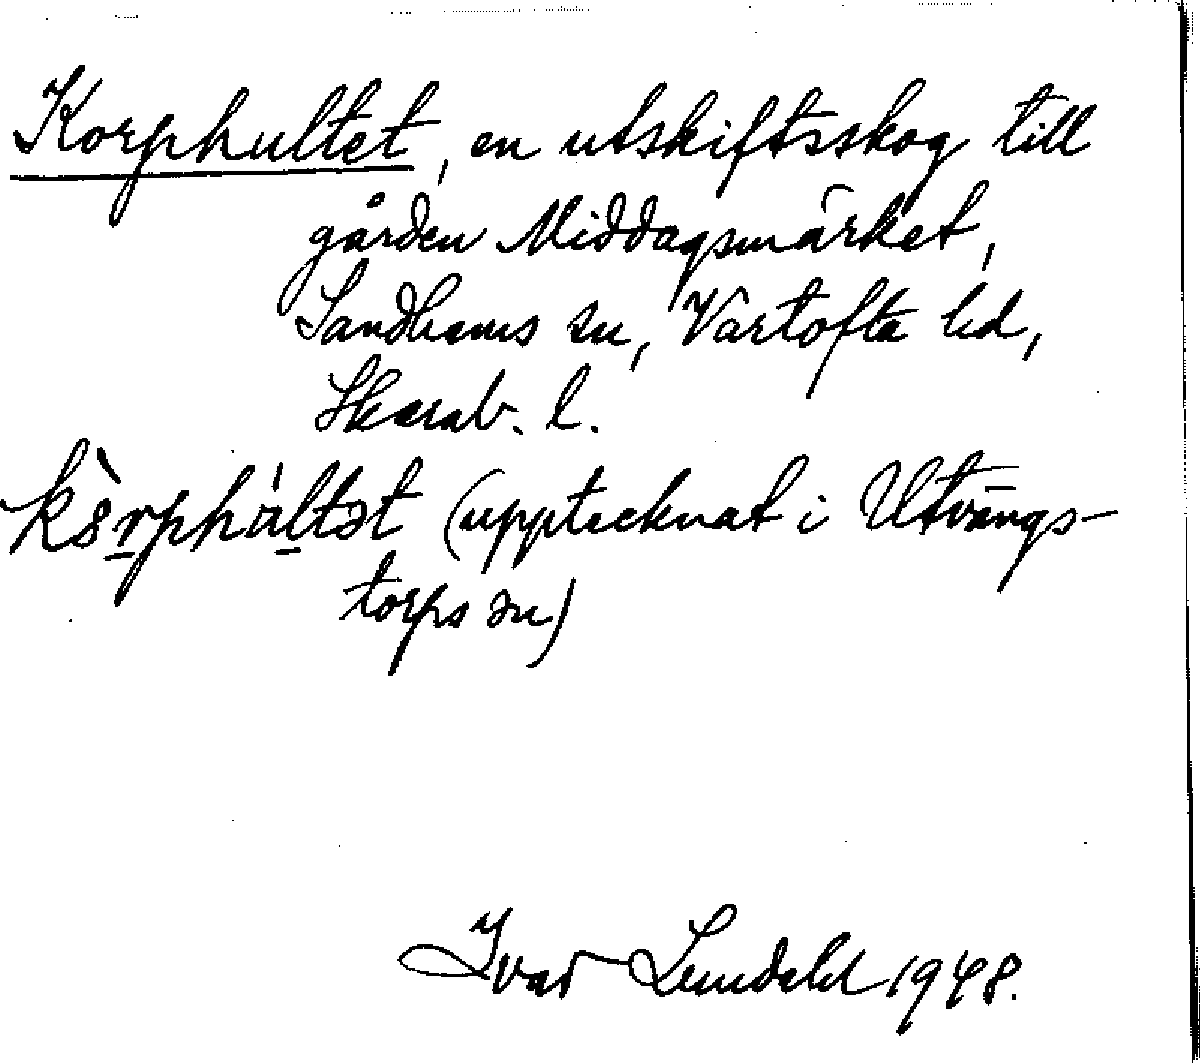 Korphultet, en utskiftsskog till
gården Middagsmärket,
Sandhems sn, Vartofta hd,
Skarab. l.
(upptecknat i Utvängs-
torps sn)
Ivar Lundahl 1948.